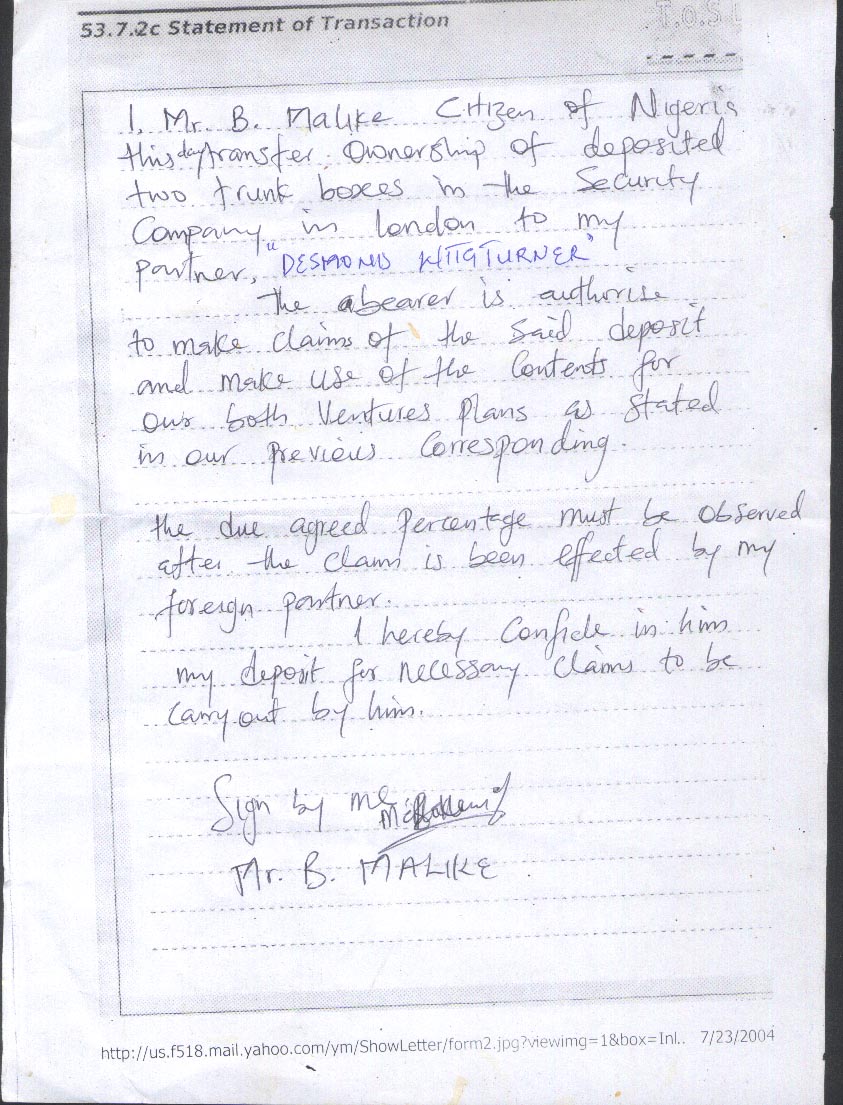 53.7.2c Statement of Transaction
T.O.S
I, Mr. B. Malike Citizen of Nigeria
this day transfer Ownership of deposited
two trunk boxes in the Security
Company in london to my
partner, "DESMOND TURNER"
The abearer is authorise
to make claims of the said deposit
and make use of the Contents for
our both Ventures Plans as stated
in our previous Corresponding.
the due agreed Percentage must be observed
after the claim is been effected by my
foreign partner.
I hereby Confide in him
my deposit for necessary claims to be
carry out by him.
Sign by me
Mr. B. MALIKE
http://us.f518.mail.yahoo.com/ym/ShowLetter/form2.jpg?viewimg=1&box=Inl.. 7/23/2004